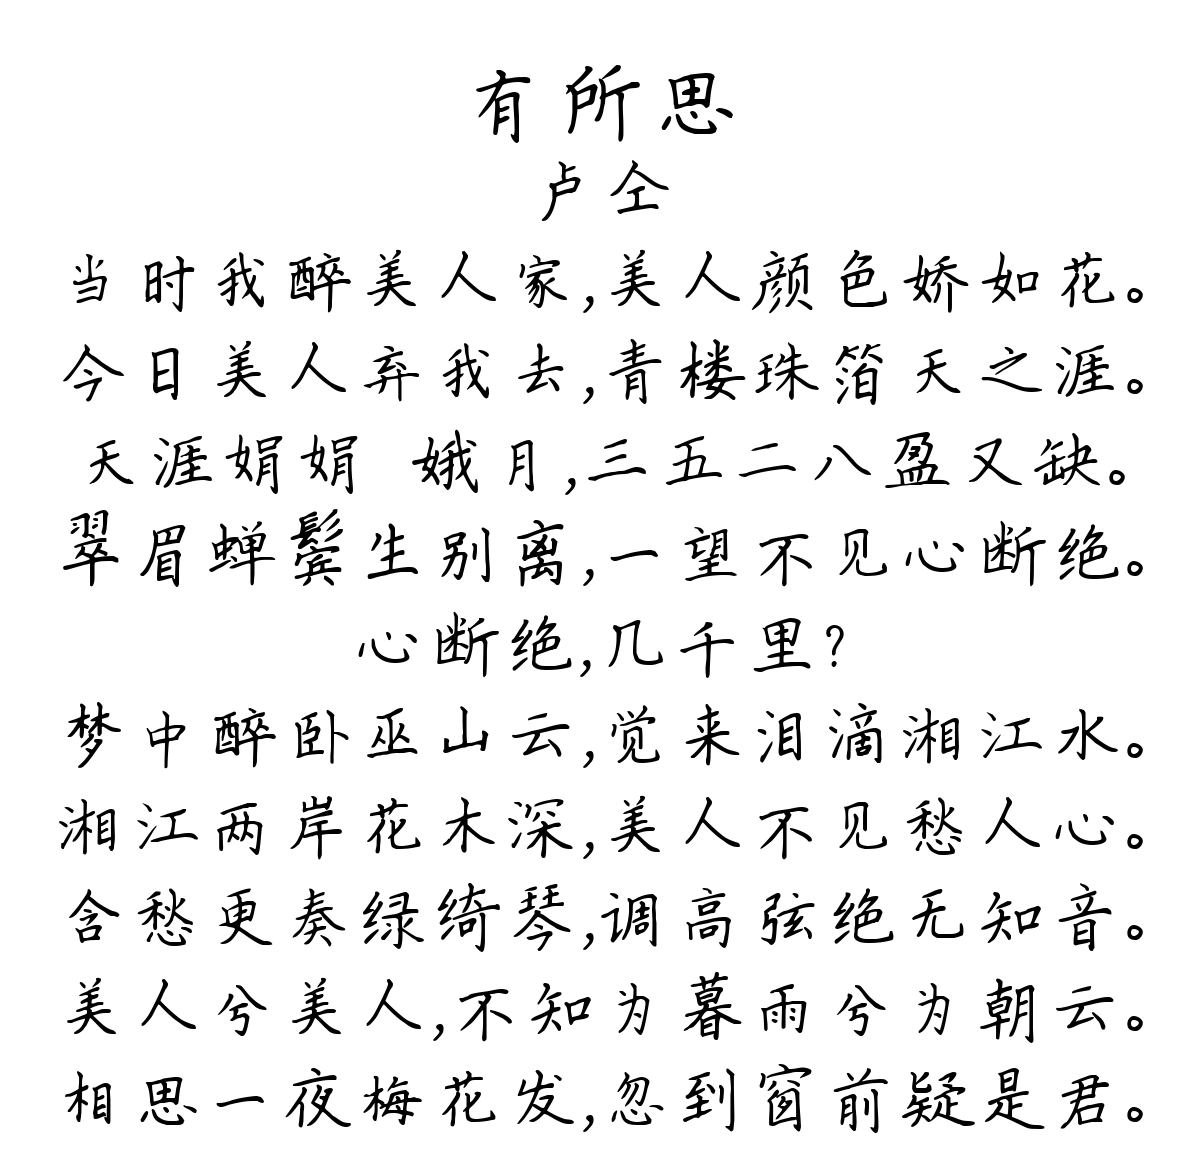 有所思
卢仝
当时我醉美人家,美人颜色娇如花。
今日美人弃我去,青楼珠箔天之涯。
天涯娟娟 娥月,三五二八盈又缺。
翠眉蝉鬓生别离,一望不见心断绝。
心断绝,几千里?
梦中醉卧巫山云,觉来泪滴湘江水。
湘江两岸花木深,美人不见愁人心。
含愁更奏绿绮琴,调高弦绝无知音。
美人兮美人,不知为暮雨兮为朝云。
相思一夜梅花发,忽到窗前疑是君。